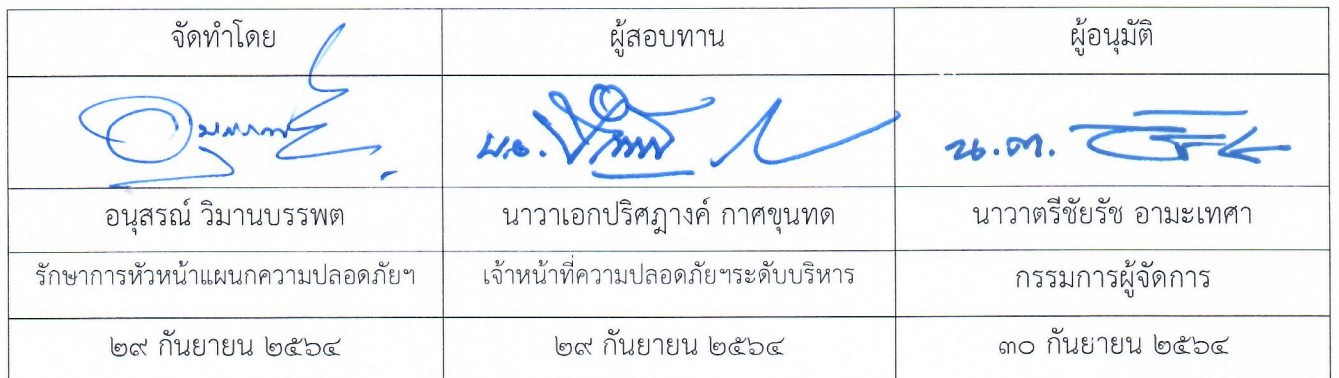 จัดทำโดย ผู้สอบทาน ผู้อนุมัติ
น.อ. น.ต.
อนุสรณ์ วิมานบรรพต นาวาเอกปริศฎางค์ กาศขุนทด นาวาตรีชัยรัช อามะเทศา
รักษาการหัวหน้าแผนกความปลอดภัยฯ เจ้าหน้าที่ความปลอดภัยฯระดับบริหาร กรรมการผู้จัดการ
๒๙ กันยายน ๒๕๖๔ ๒๙ กันยายน ๒๕๖๔ ๓๐ กันยายน ๒๕๖๔